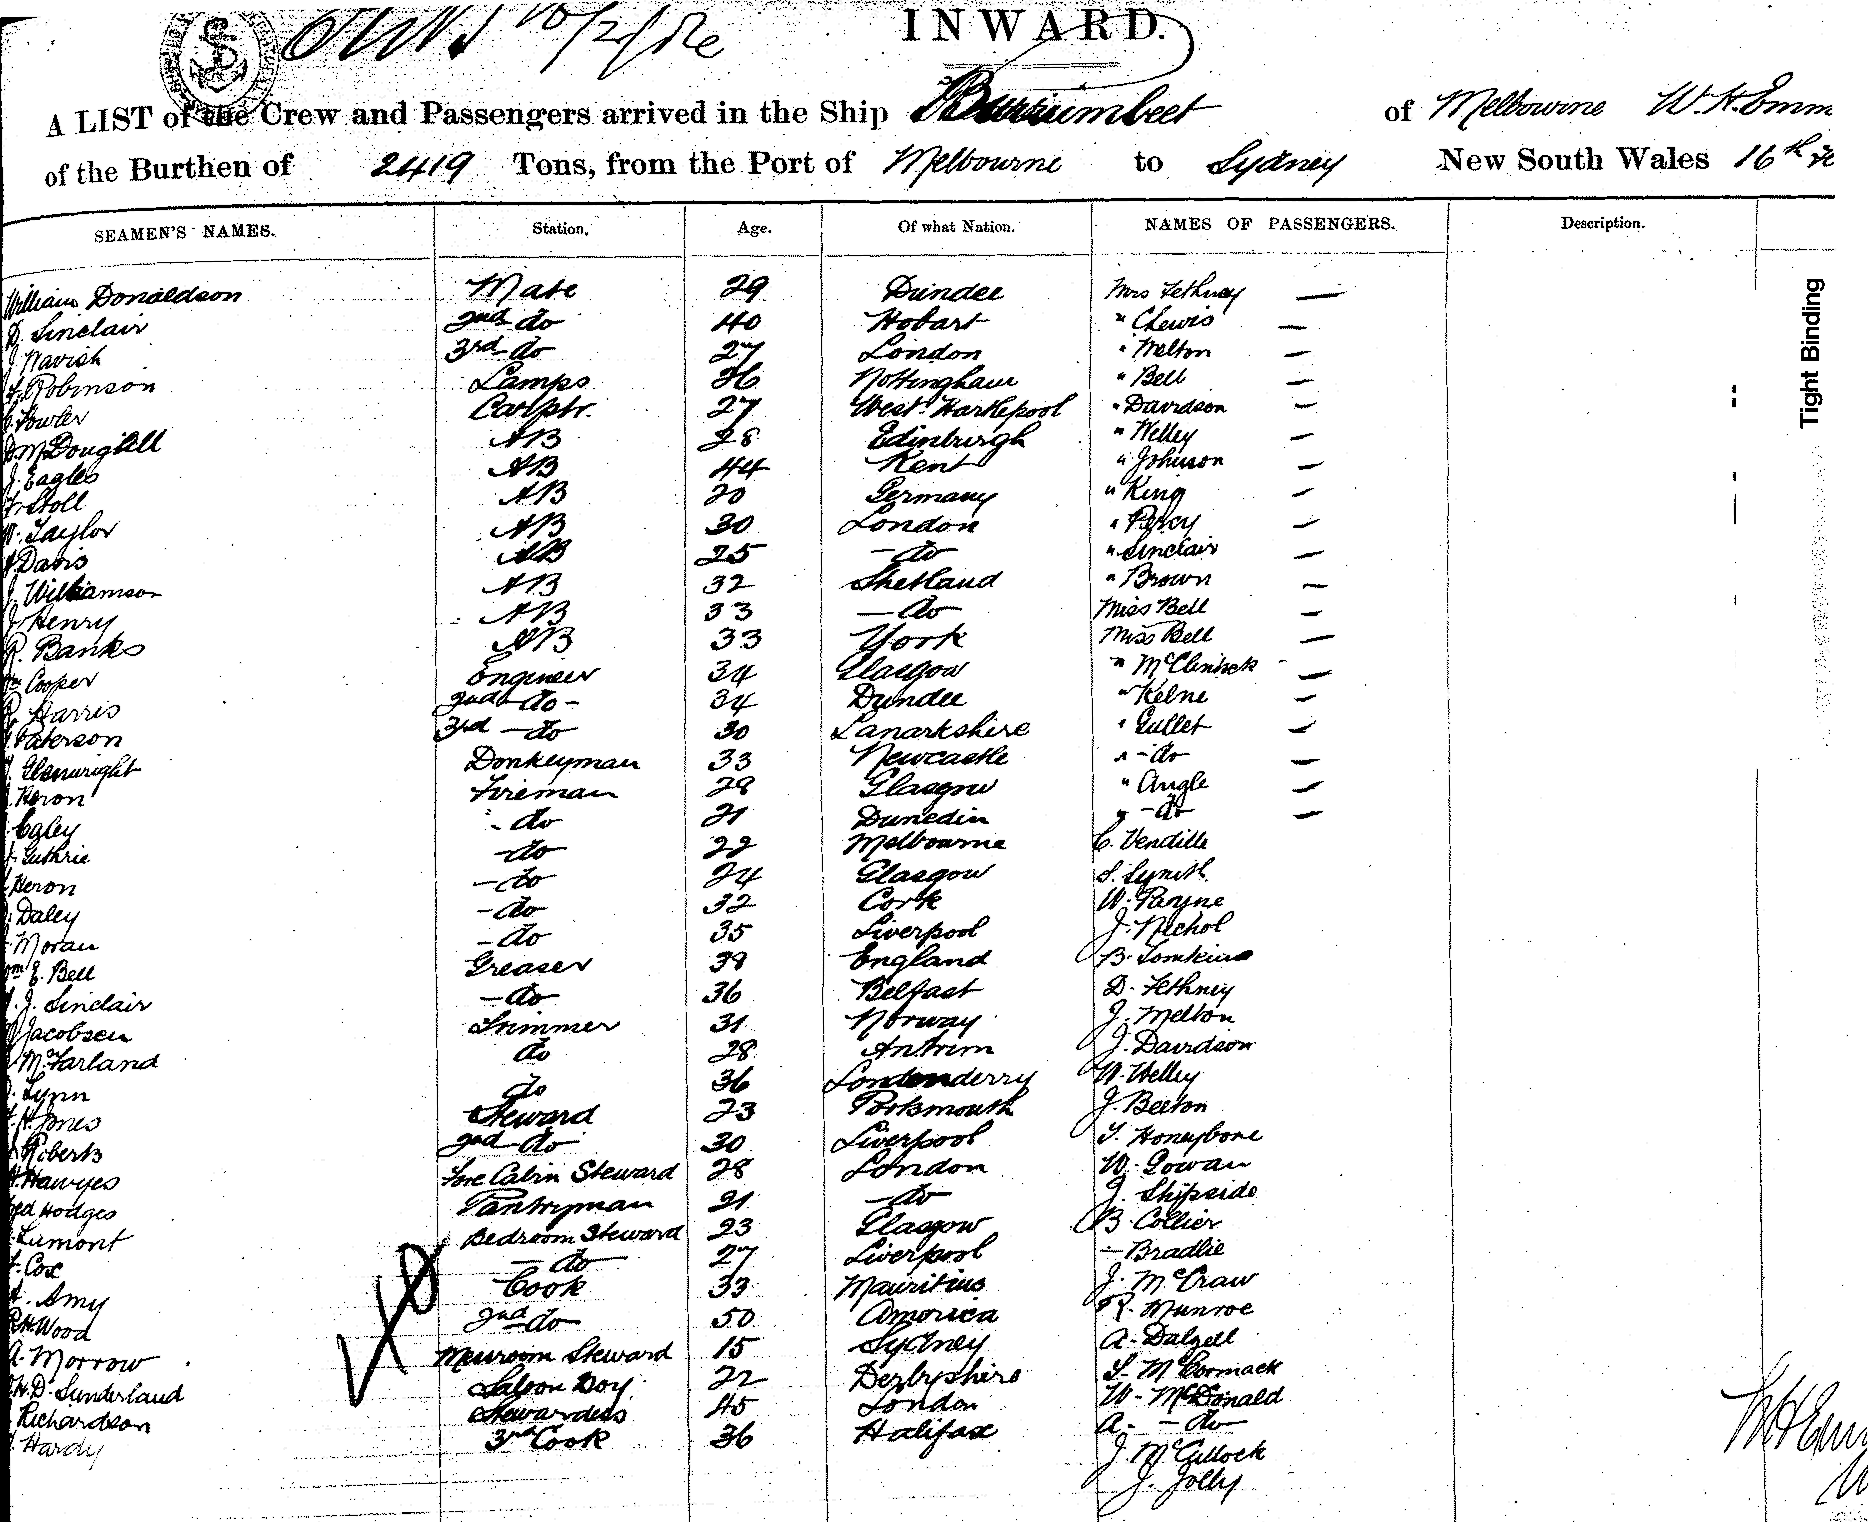 INWARD.
A LIST of the Crew and Passengers arrived in the Ship Burrumbeet of Melbourne W. H. Emm
of the Burthen of 2419 Tons, from the Port of Melbourne to Sydney New South Wales 16th
SEAMEN'S NAMES. Station. Age. Of what Nation. NAMES OF PASSENGERS. Description.
William Donaldson Mate 29 Dundee Mrs Fethney —
Sinclair 2nd do 40 Hobart " Chewis —
J Navish 3rd do 27 London " Melton —
Robinson Lamps 26 Nottingham " Bell —
Fowler Carptr. 27 West Hartlepool " Davidson —
D. McDougall AB 28 Edinburgh " Welley —
J. Eagles AB 44 Kent " Johnson —
F. Stoll AB 20 Germany " King —
W. Taylor AB 30 London " Percy —
Davis AB 25 — do " Sinclair —
J. Williamson AB 32 Shetland " Brown —
J. Henry AB 33 — do Miss Bell —
R. Banks AB 33 York Miss Bell —
Wm Cooper Engineer 34 Glasgow " —
Harris 2nd do - 34 Dundee " Kelne —
Paterson 3rd — do 30 Lanarkshire " Gullet —
Glenwright Donkeyman 33 Newcastle " - do —
Heron Fireman 28 Glasgow " Angle —
Egley - do 21 Dunedin " - do —
Guthrie - do 22 Melbourne C. Vendille
Heron - do 24 Glasgow S. Smith
Daley - do 32 Cork W. Payne
Moran - do 35 Liverpool J. Nichol
Wm E. Bell Greaser 38 England B. Tomkins
J. Sinclair - do 36 Belfast D. Fethney
Jacobsen Trimmer 31 Norway J. Melton
McFarland do 28 Antrim J. Davidson
Lynn do 36 Londonderry W. Welley
H. Jones Steward 23 Portsmouth J. Beeton
Roberts 2nd do 30 Liverpool T. Honeybone
Hawyes Fore Cabin Steward 28 London W. Gowan
Hodges Pantryman 21 — do J. Shipside
Lumont Bedroom Steward 23 Glasgow B. Collier
Cox — do 27 Liverpool — Bradlie
Amy Cook 33 Mauritius J. McCraw
Wood 2nd do 50 America R. Munroe
A. Morrow Messroom Steward 15 Sydney A. Dalzell
W. D. Sunderland Saloon Boy 22 Derbyshire S. McCormack
Richardson Stewardess 45 London W. McDonald
Hardy 3rd Cook 36 Halifax A. — do
J. McCullock
J. Jolly
Tight Binding